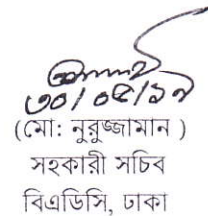 ৩০/০৫/১৭
(মো: নুরুজ্জামান )
সহকারী সচিব
বিএডিসি, ঢাকা